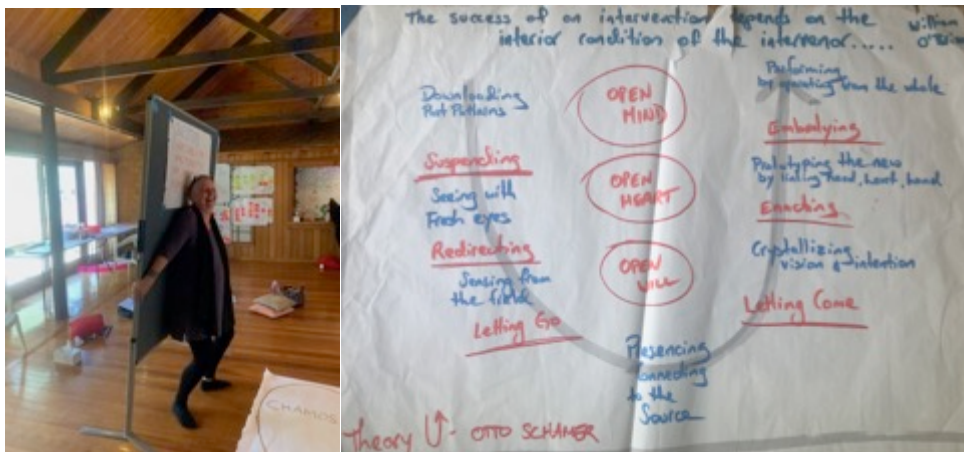 The success of an intervention depends on the
interior condition of the intervenor.....
William
O'Brien
Downloading
Past Patterns
Suspending
Seeing with
Fresh eyes
Redirecting
Sensing from
the field
Letting Go
OPEN
MIND
OPEN
HEART
OPEN
WILL
Presencing
Connecting
to the
Source
Performing
by operating from the whole
Embodying
Prototyping the new
by linking head, heart, hand
Enacting
Crystallizing
vision & intention
Letting Come
Theory U - OTTO SCHAMER
CHAMOS